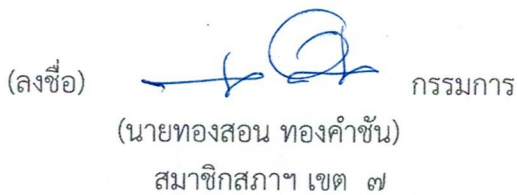 (ลงชื่อ) กรรมการ
(นายทองสอน ทองคำชัน)
สมาชิกสภาฯ เขต ๗